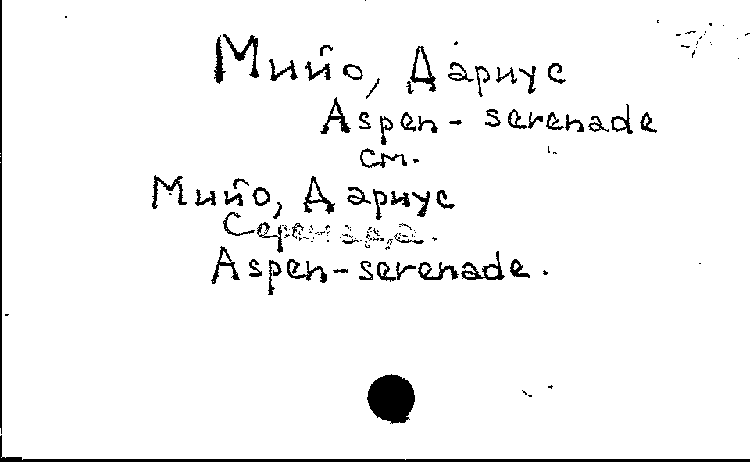 Мийо, Дариус
Aspen - serenade
см.
Мийо, Дариус
Серенада.
Aspen-serenade.